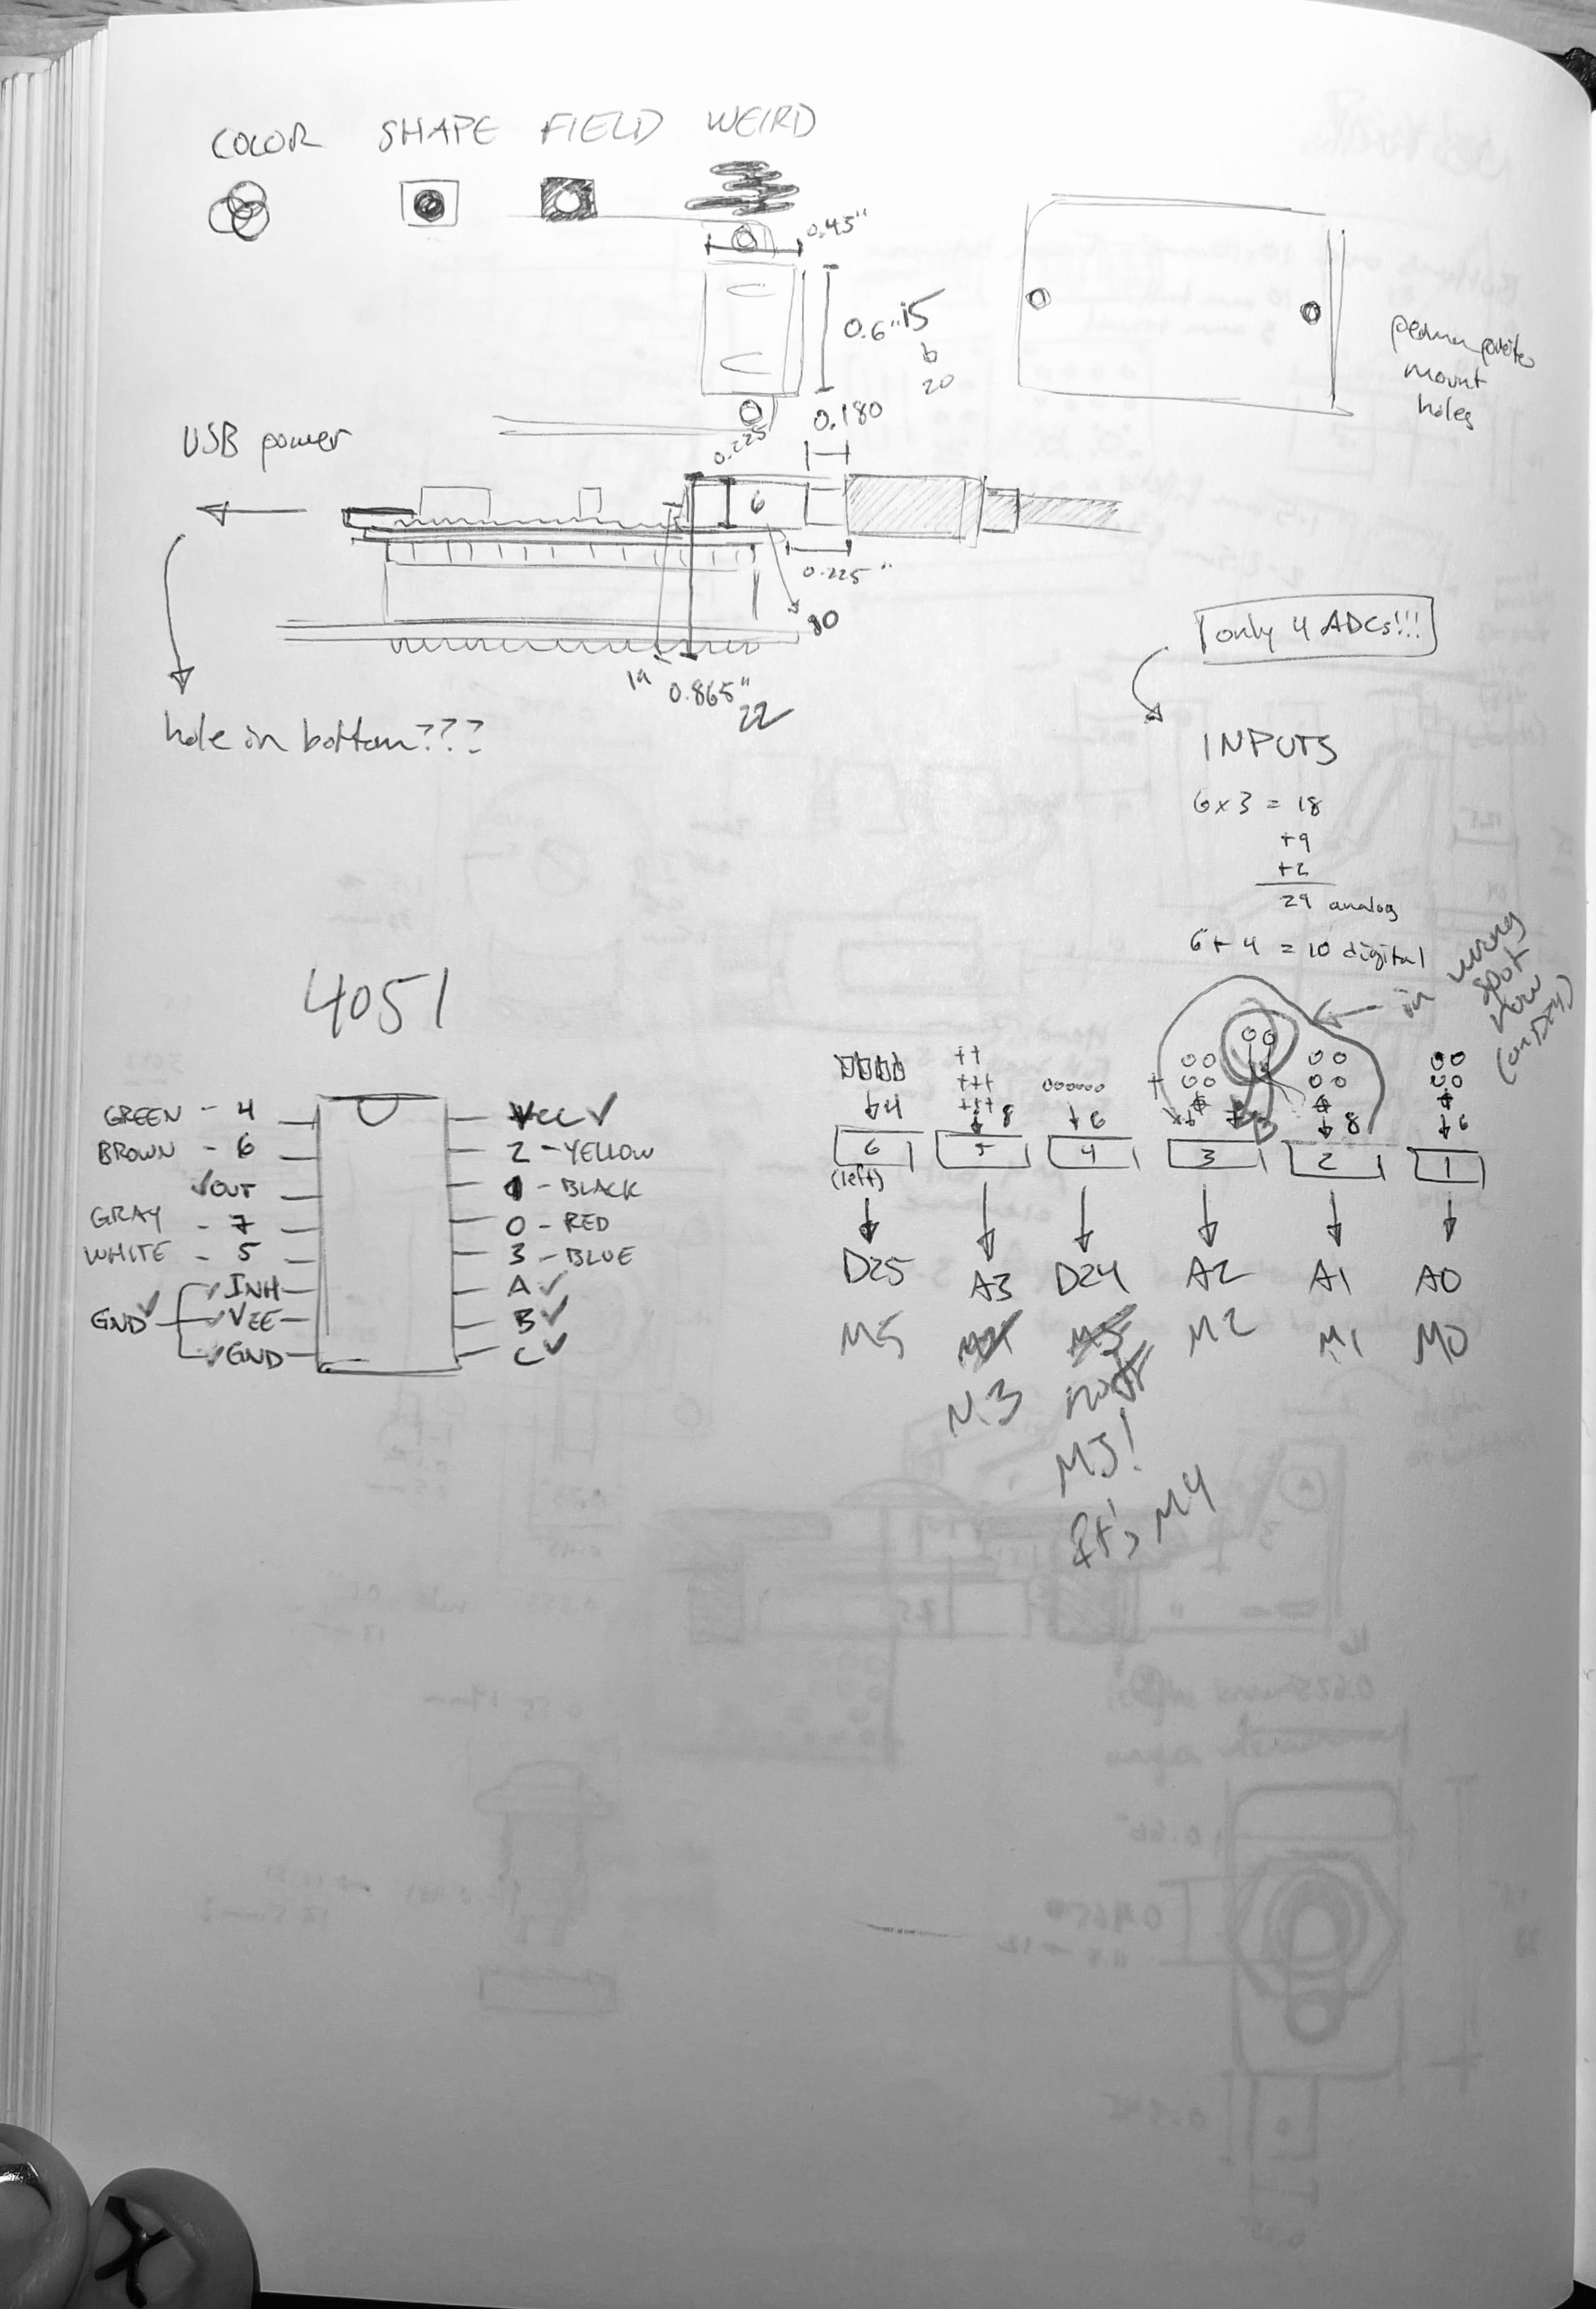 COLOR SHAPE FIELD WEIRD
0.45"
0.6" 15
20
0.180
mount
holes
USB power
0.225
6
0.225"
80
1"
0.865"
22
hole in bottom???
only 4 ADCs!!!
INPUTS
6x3 = 18
+9
+2
29 analog
6+4 = 10 digital
in wrong
spot
now
(on D24)
4051
GREEN - 4
BROWN - 6
✓OUT
GRAY - 7
WHITE - 5
✓INH
GND✓ ✓VEE
✓GND
VCC✓
2 - YELLOW
1 - BLACK
0 - RED
3 - BLUE
A✓
B✓
C✓
4 8 6 8 6
6 5 4 3 2 1
(left)
D25 A3 D24 A2 A1 A0
M5 M2 M1 M0
M3
M4